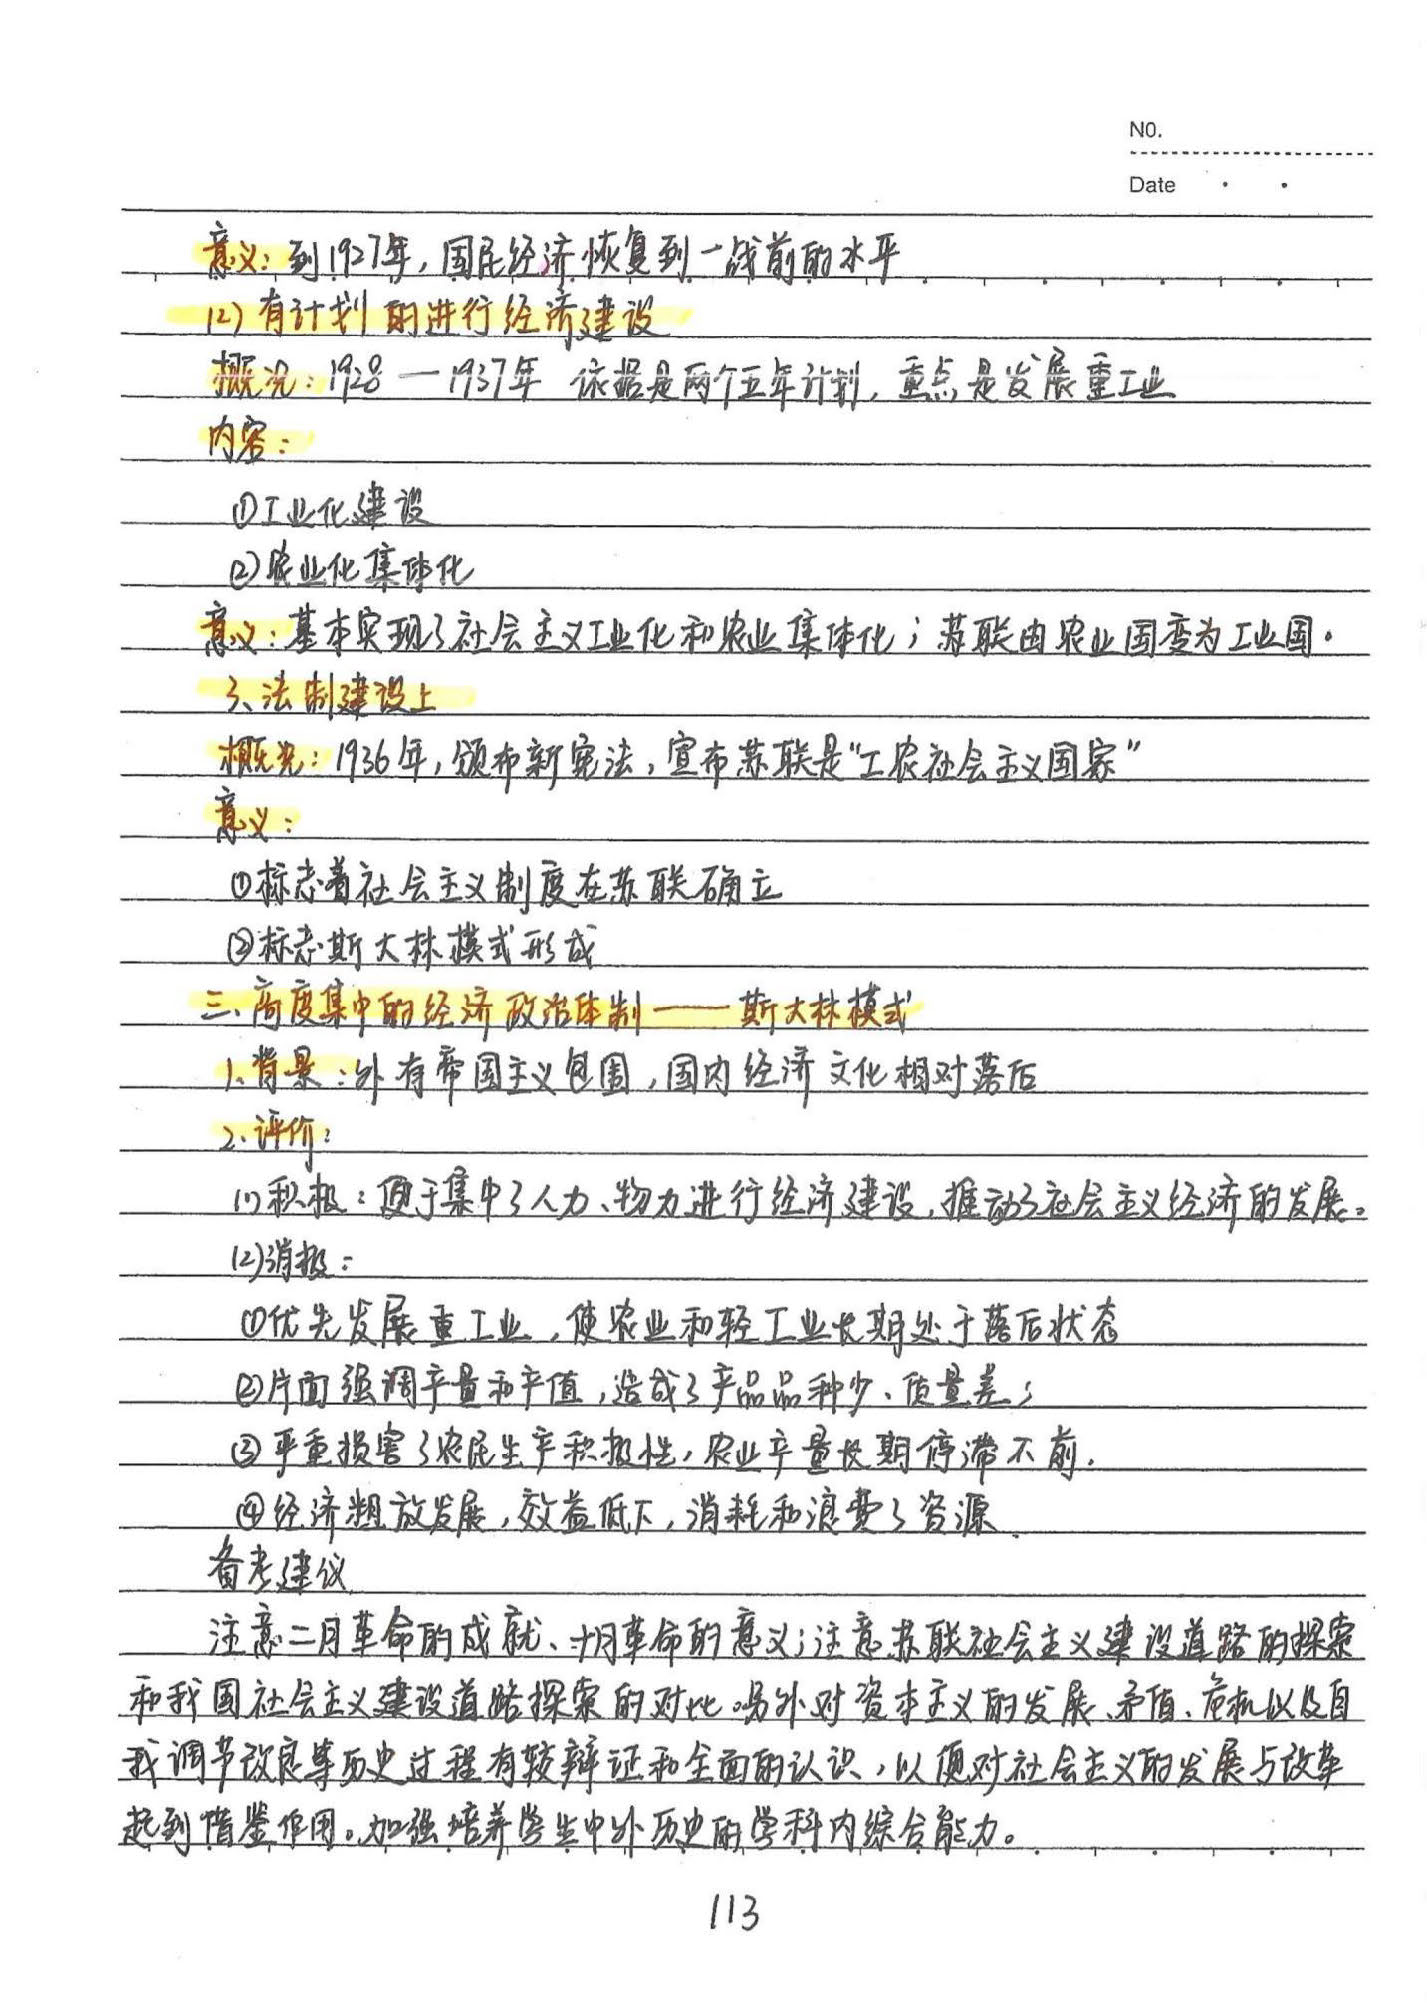 NO.
Date
意义：到1927年，国民经济恢复到一战前的水平
(2)有计划的进行经济建设
概况：1928—1937年 依据是两个五年计划，重点是发展重工业
内容：
①工业化建设
②农业化集体化
意义：基本实现了社会主义工业化和农业集体化；苏联由农业国变为工业国。
3、法制建设上
概况：1936年，颁布新宪法，宣布苏联是“工农社会主义国家”
意义：
①标志着社会主义制度在苏联确立
②标志斯大林模式形成
三、高度集中的经济政治体制——斯大林模式
1、背景：外有帝国主义包围，国内经济文化相对落后
2、评价：
(1)积极：便于集中了人力、物力进行经济建设，推动了社会主义经济的发展。
(2)消极：
①优先发展重工业，使农业和轻工业长期处于落后状态
②片面强调产量和产值，造成了产品品种少、质量差；
③严重损害了农民生产积极性，农业产量长期停滞不前.
④经济粗放发展，效益低下，消耗和浪费了资源
备考建议
注意二月革命的成就、十月革命的意义；注意苏联社会主义建设道路的探索
和我国社会主义建设道路探索的对比。另外对资本主义的发展、矛值、危机以及自
我调节改良等历史过程有较辩证和全面的认识，以便对社会主义的发展与改革
起到借鉴作用。加强培养学生中外历史的学科内综合能力。
113